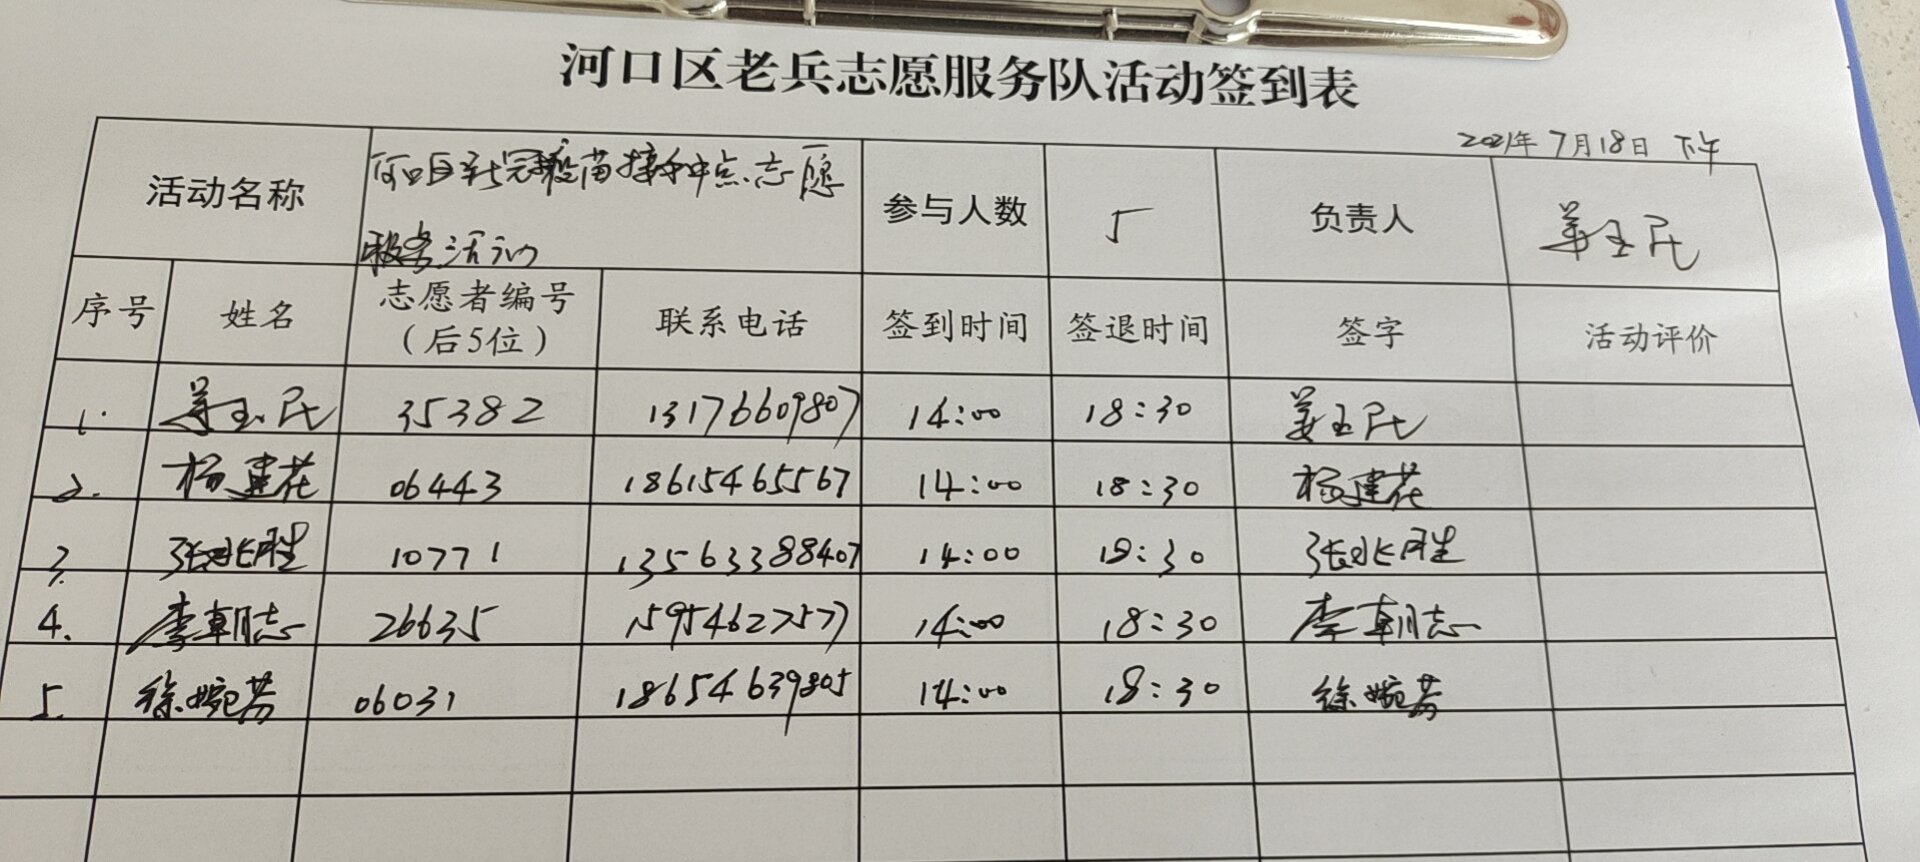 河口区老兵志愿服务队活动签到表
2021年7月18日 下午
活动名称 河口区新冠疫苗接种点志愿服务活动 参与人数 5 负责人 姜玉民
序号 姓名 志愿者编号（后5位） 联系电话 签到时间 签退时间 签字 活动评价
1. 姜玉民 35382 13176609807 14:00 18:30 姜玉民
2. 杨建花 06443 18615465567 14:00 18:30 杨建花
3. 张兆胜 10771 13563388407 14:00 18:30 张兆胜
4. 李朝志 26635 15954627577 14:00 18:30 李朝志
5. 徐婉芳 06031 18654639805 14:00 18:30 徐婉芳